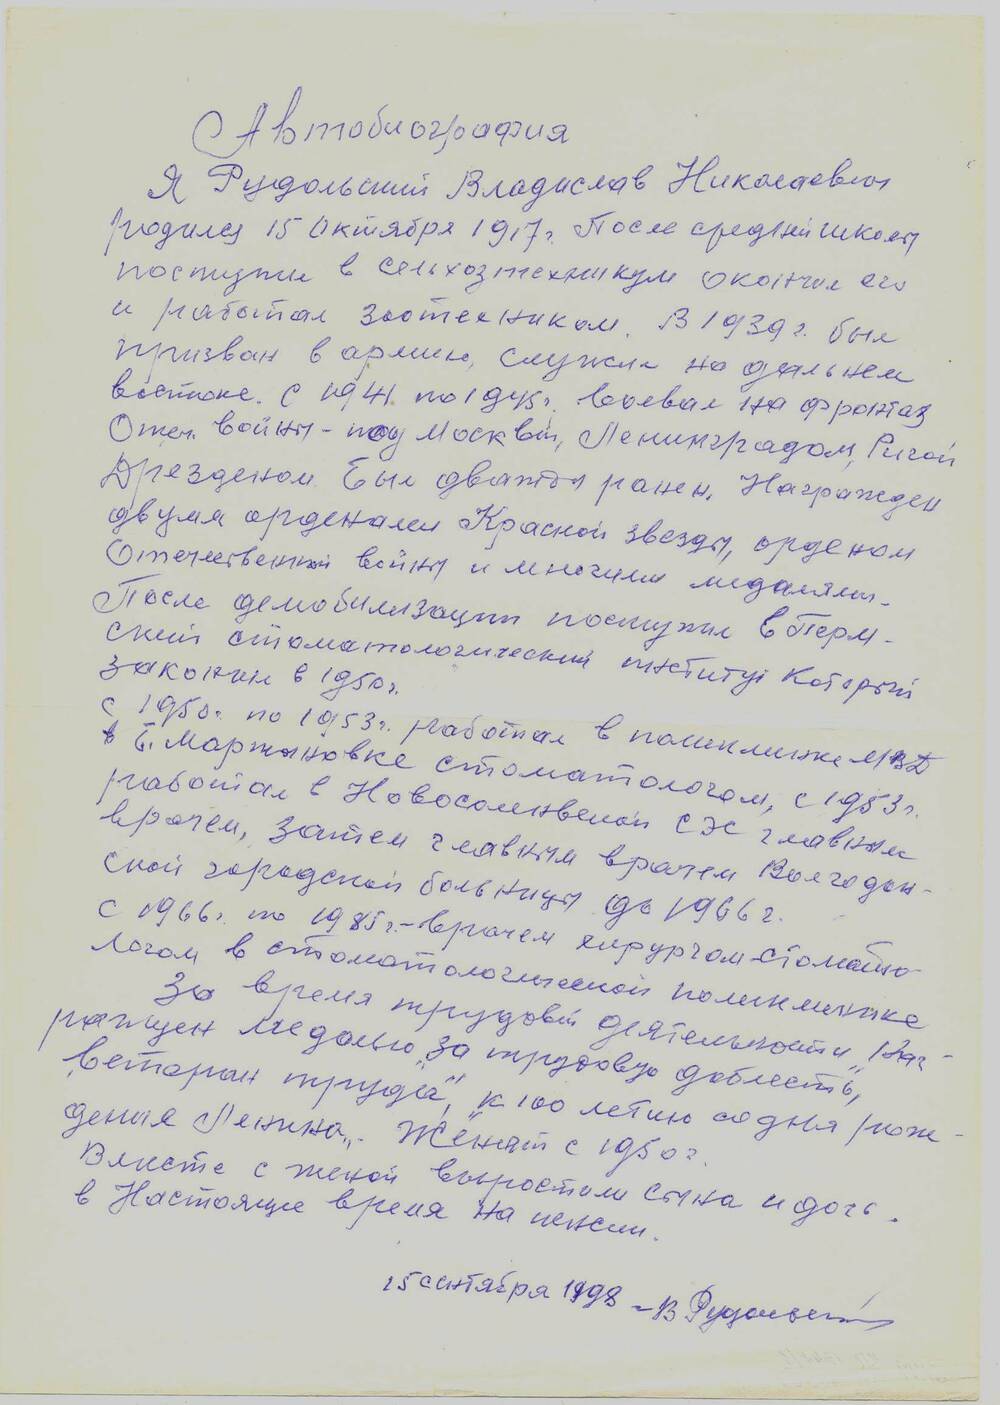 Автобиография
Я Рудольский Владислав Николаевич
родился 15 Октября 1917г. После средней школы
поступил в сельхозтехникум окончил его
и работал зоотехником. В 1939 г. был
призван в армию, служил на дальнем
востоке. С 1941 по 1945г. воевал на фронтах
Отеч. войны - под Москвой, Ленинградом, Ригой
Дрезденом. Был дважды ранен. Награжден
двумя орденами Красной звезды, орденом
Отечественной войны и многими медалями.
После демобилизации поступил в Перм-
ский стоматологический институт который
закончил в 1950г.
с 1950г. по 1953г. работал в поликлинике МВД
в Б. Мартыновке стоматологом, с 1953г.
работал в Новосоленовской СЭС главным
врачем, затем главным врачем Волгодон-
ской городской больницы до 1966г.
С 1966г. по 1985г. - врачем хирургом-стомато-
логом в стоматологической поликлинике
За время трудовой деятельности наг-
ражден медалью "За трудовую доблесть",
"Ветеран труда", "к 100 летию со дня рож-
дения Ленина". Женат с 1950г.
Вместе с женой вырастили сына и дочь.
в Настоящее время на пенсии.
15 сентября 1998 - В Рудольский